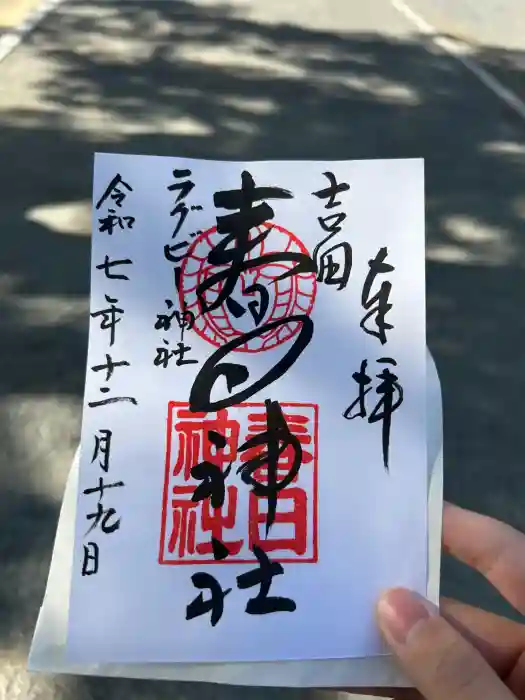 奉拝
吉田
春日神社
春日
神社
ラグビー神社
令和七年十二月十九日